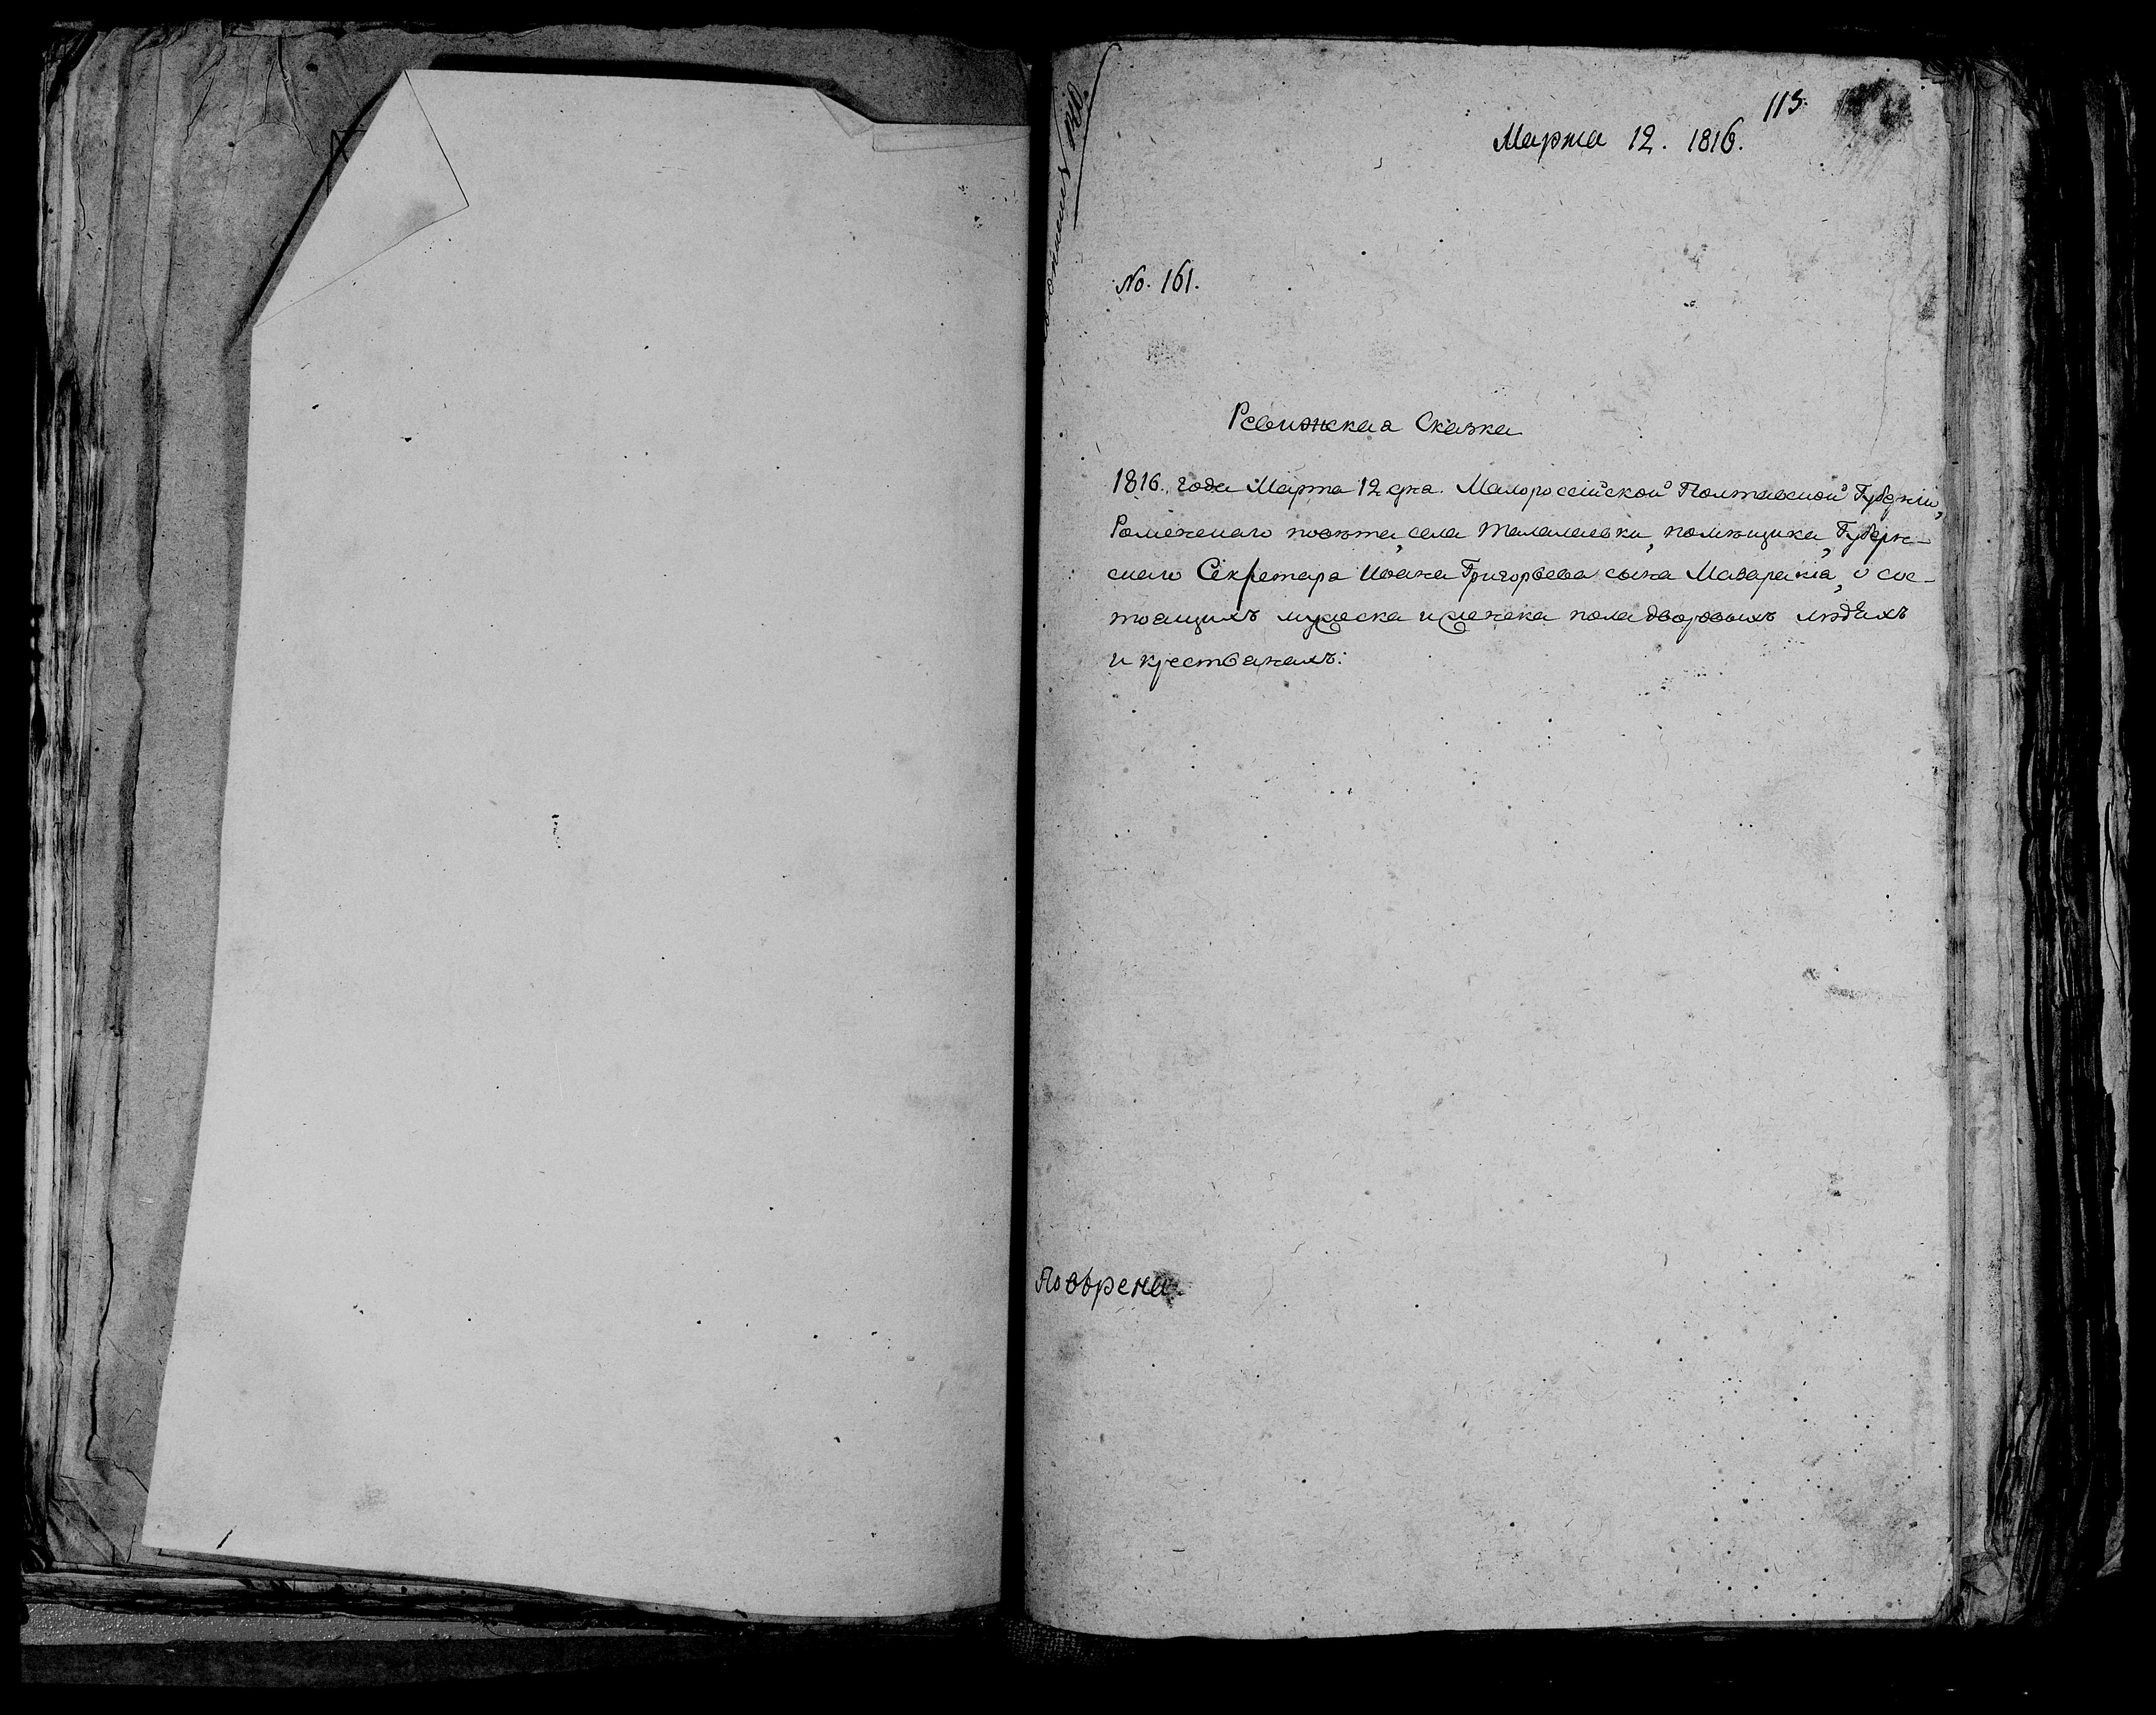 113.
Марта 12. 1816.
No. 161.
Ревижская Сказка
1816. года Марта 12 дня. Малороссійской Полтавской Губерніи,
Роменскаго повѣта, села Талалаевки, помѣщика, Губерн-
скаго Секретара Ивана Григорьева сына Мазаракія, о сос-
тоящихъ мужеска и женска пола дворовыхъ людѣхъ
и крестьянахъ: